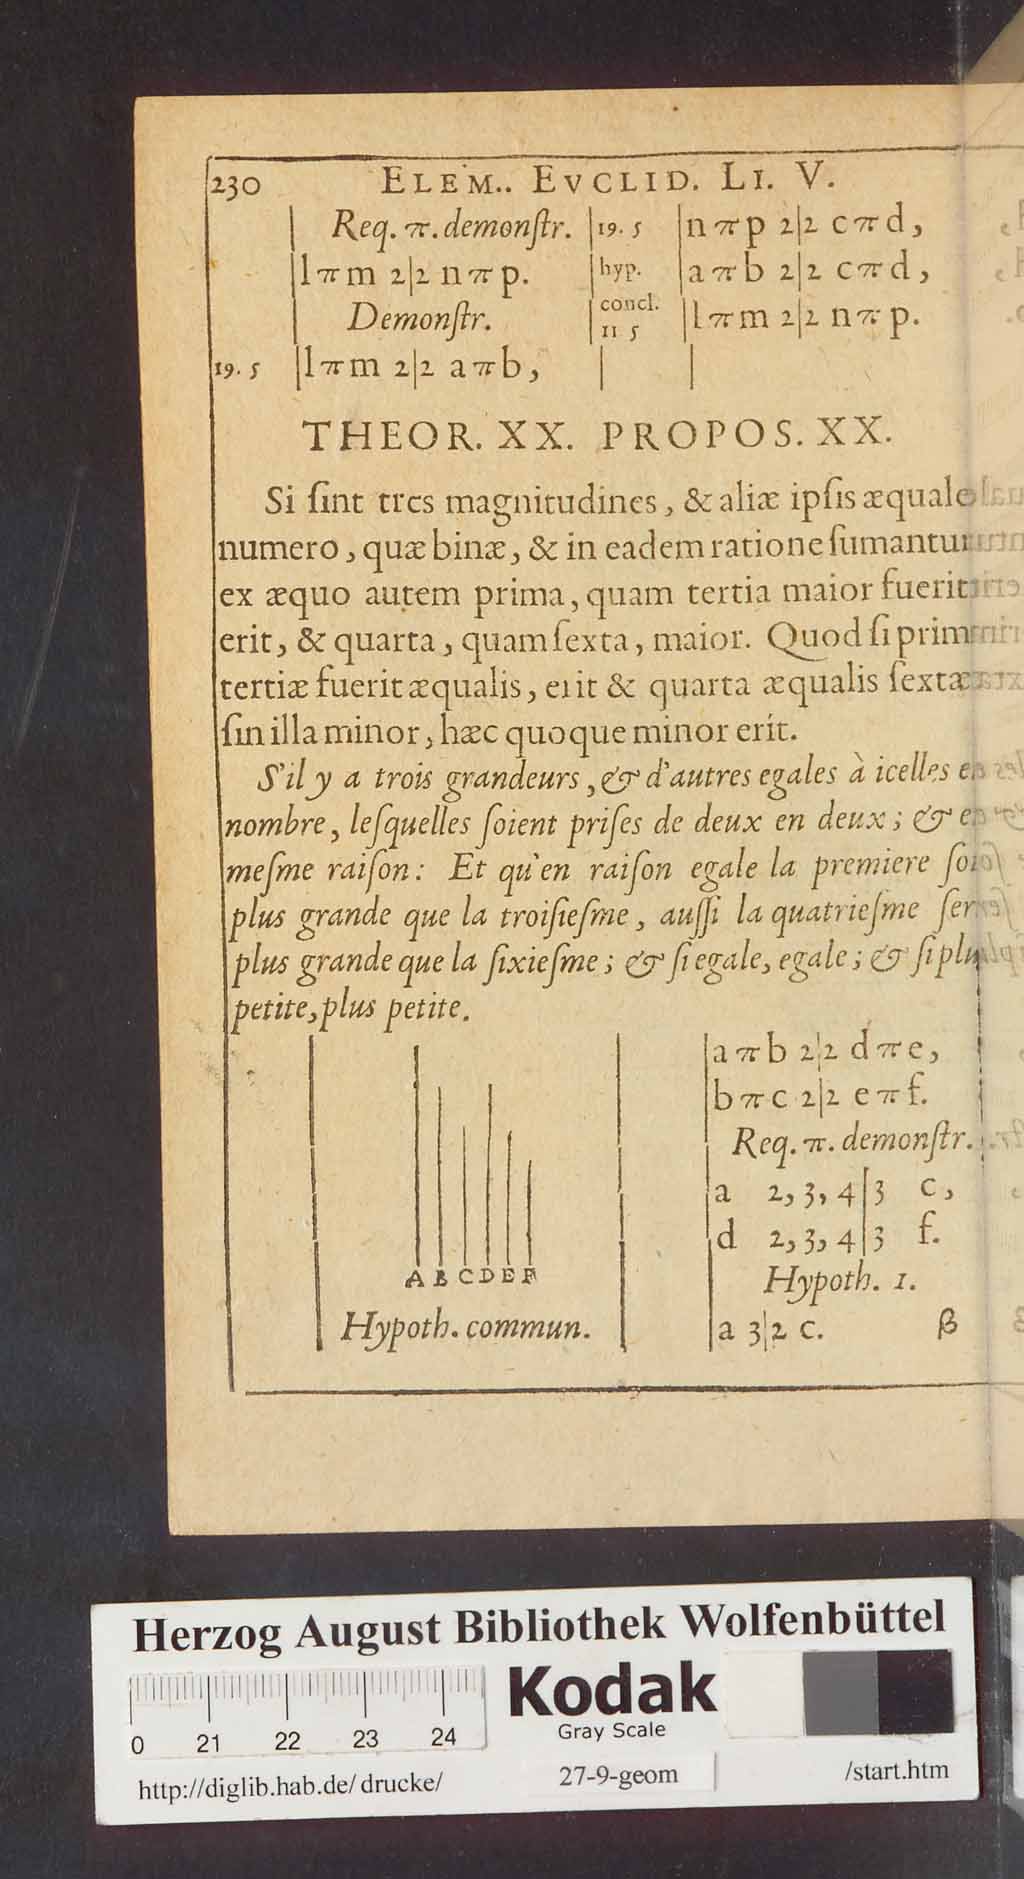 230 ELEM.. EVCLID. LI. V.
Req. π. demonſtr.
lπm 2|2 nπp.
Demonſtr.
19. 5 lπm 2|2 aπb,
19. 5 nπp 2|2 cπd,
hyp. aπb 2|2 cπd,
concl.
11 5 lπm 2|2 nπp.
THEOR. XX. PROPOS. XX.
Si ſint tres magnitudines, & aliæ ipſis æquale
numero, quæ binæ, & in eadem ratione ſumantur
ex æquo autem prima, quam tertia maior fuerit
erit, & quarta, quam ſexta, maior. Quod ſi prim
tertiæ fuerit æqualis, erit & quarta æqualis ſextæ
ſin illa minor, hæc quoque minor erit.
S'il y a trois grandeurs, & d'autres egales à icelles en
nombre, leſquelles ſoient priſes de deux en deux; & en
meſme raiſon: Et qu'en raiſon egale la premiere ſoi
plus grande que la troiſieſme, auſſi la quatrieſme ſer
plus grande que la ſixieſme; & ſi egale, egale; & ſi plu
petite, plus petite.
A B C D E F
Hypoth. commun.
aπb 2|2 dπe,
bπc 2|2 eπf.
Req. π. demonſtr.
a 2, 3, 4|3 c,
d 2, 3, 4|3 f.
Hypoth. 1.
a 3|2 c. β
Herzog August Bibliothek Wolfenbüttel
0 21 22 23 24
Kodak
Gray Scale
http://diglib.hab.de/drucke/ 27-9-geom /start.htm